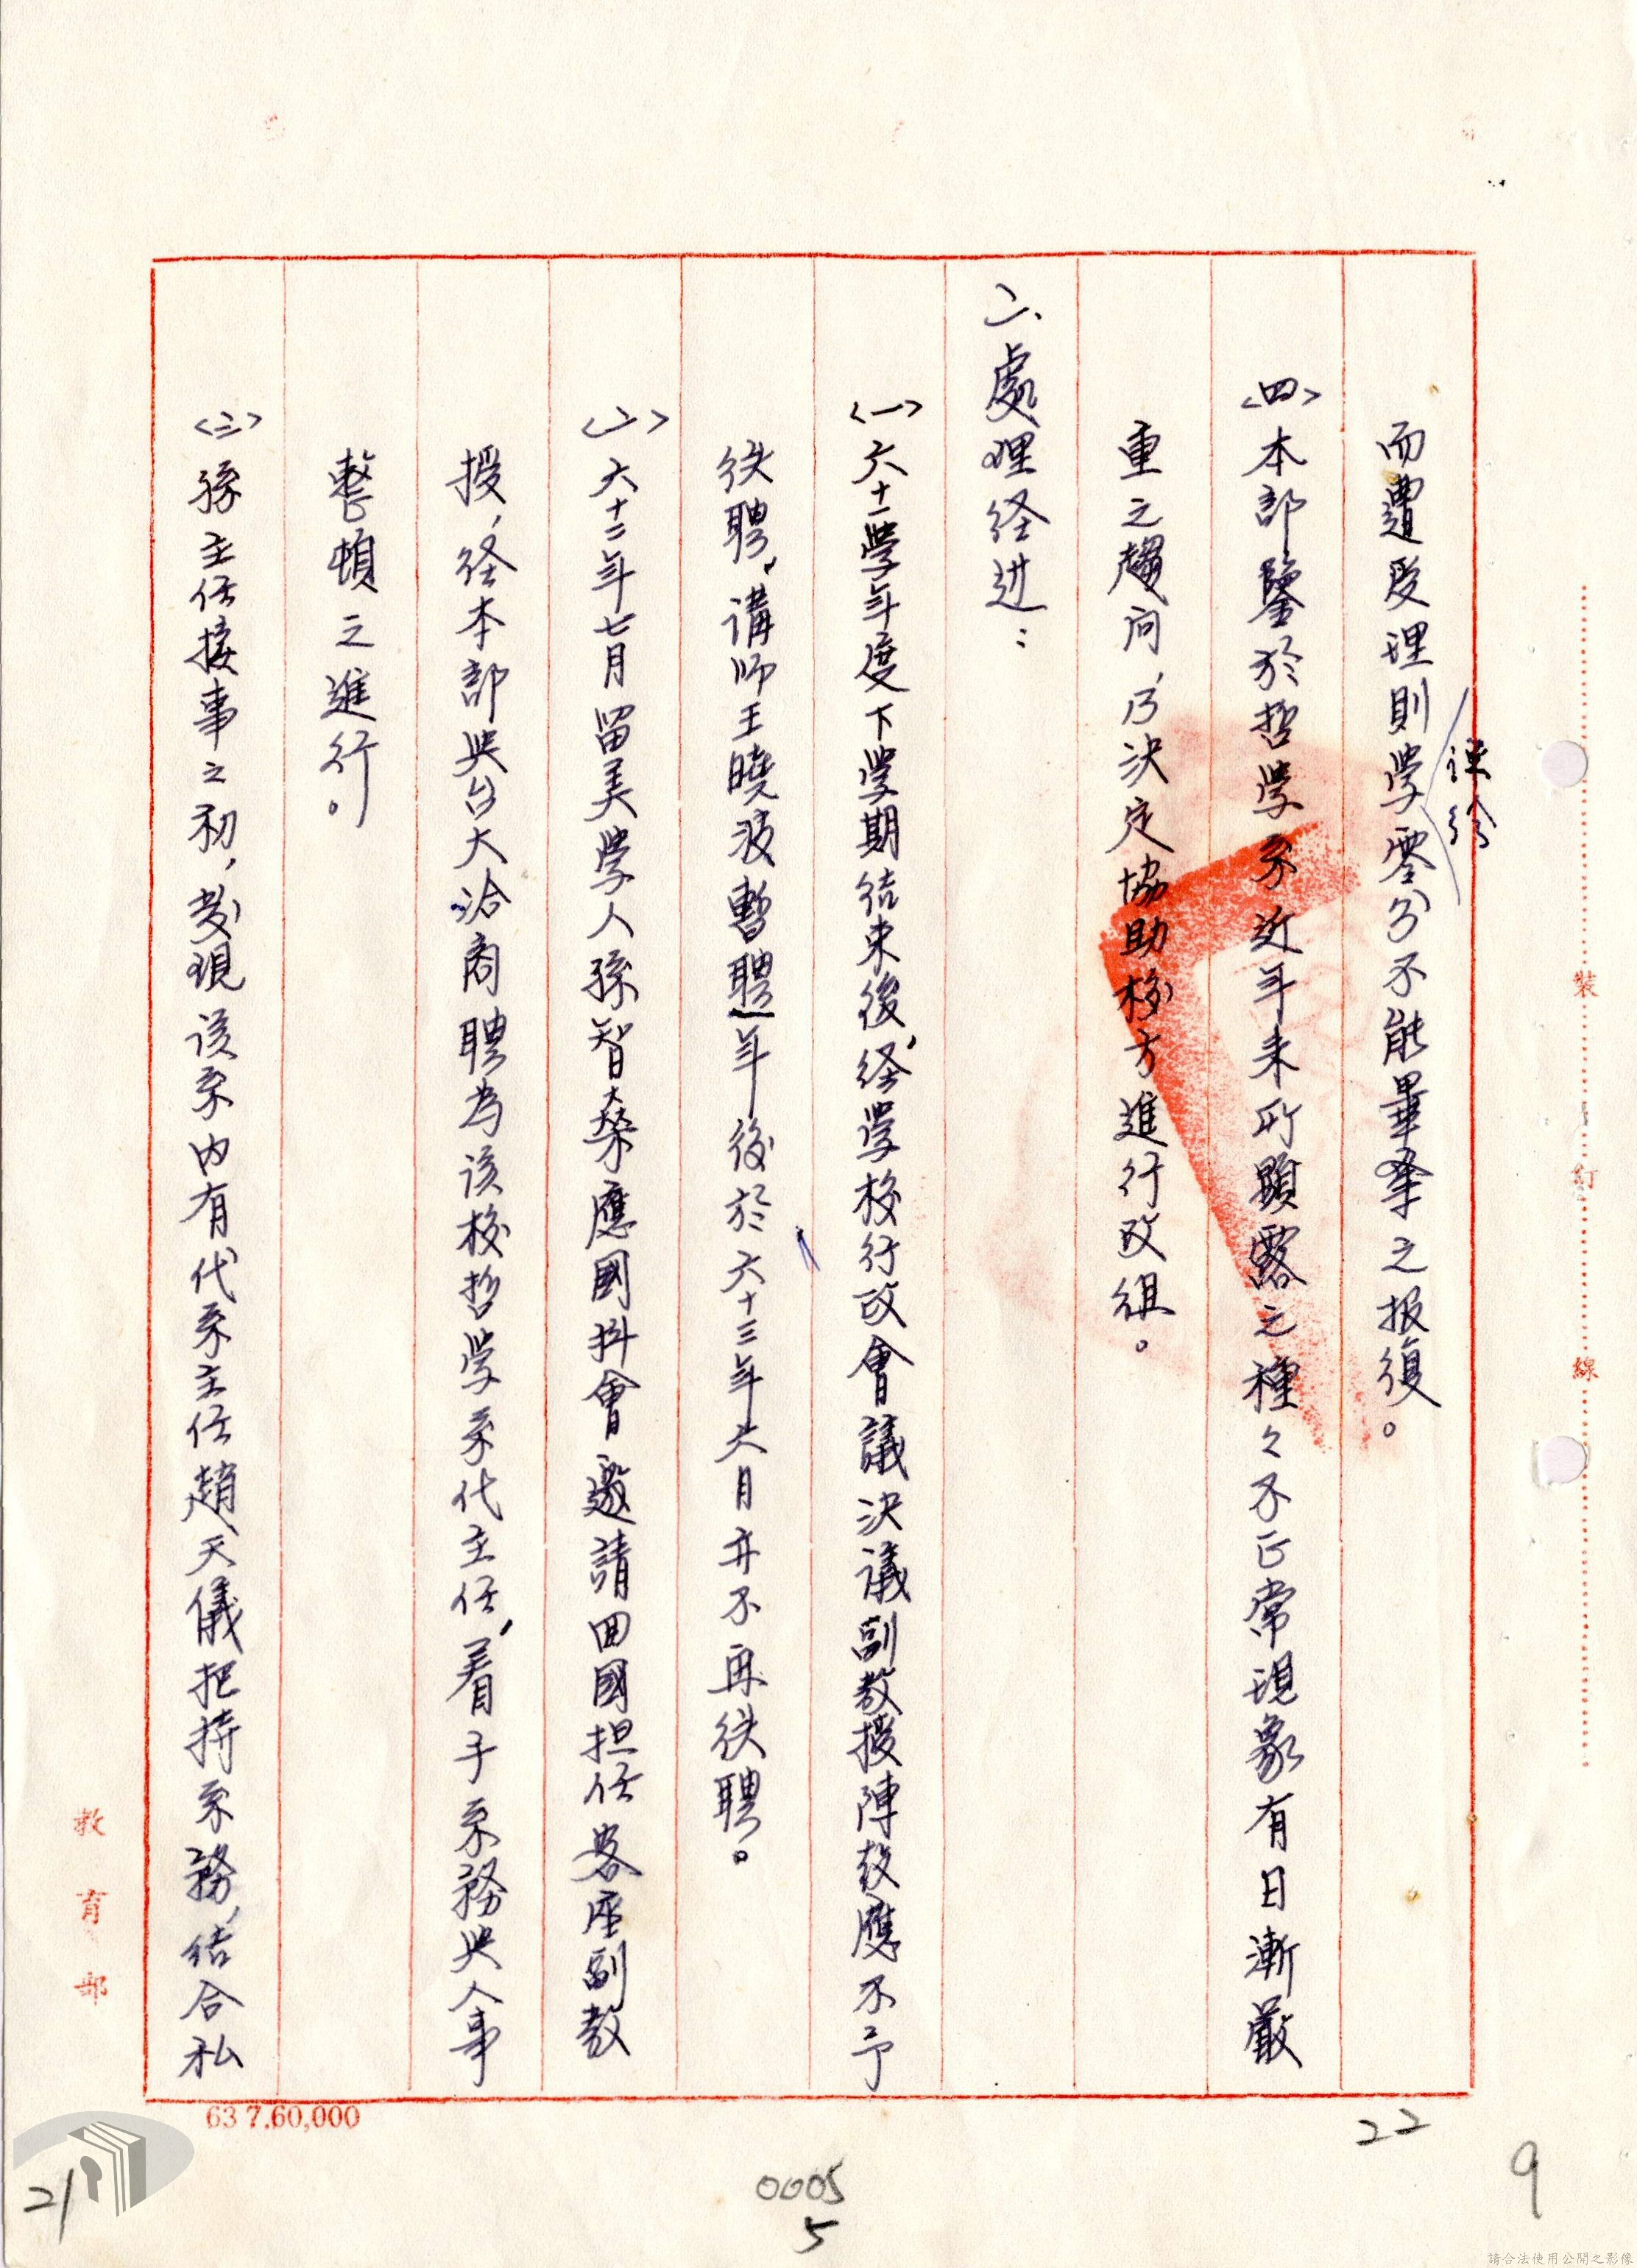 而遭受理則學課給零分不能畢業之报復。
<四>本部鑒於哲學系近年来所顯露之種々不正常現象有日漸嚴
重之趨向，乃決定協助校方進行改組。
二、處理経过：
<一>六十一學年度下學期结束後，経學校行政會議決議副教授陳鼓應不予
续聘，講师王曉波暫聘一年後於六十三年六月亦不再续聘。
<二>六十二年七月留美學人孫智燊應國科會邀請囬國担任客座副教
授，経本部與台大洽商聘为该校哲学系代主任，着手系務與人事
整頓之進行。
<三>孫主任接事之初，发現该系内有代系主任趙天儀把持系務，结合私
裝
訂
線
教育部
63 7.60,000
22
9
21
0005
5
請合法使用公開之影像